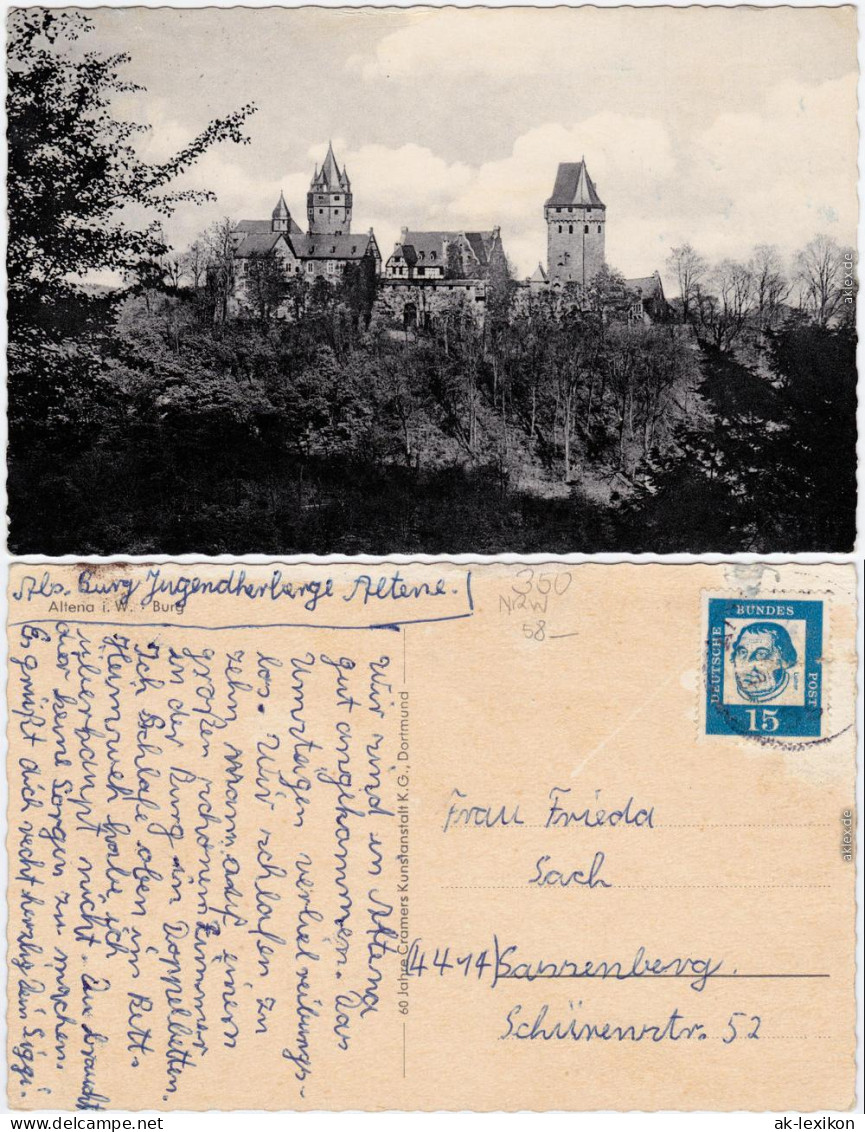 aklex.de
Abs. Burg Jugendherberge Altena.
Altena i. W. : Burg
350
NRW
58-
DEUTSCHE BUNDESPOST
15
Wir sind in Altena
gut angekommen. Das
Umsteigen verlief reibungs-
los. Wir schlafen zu
zehn Mann auf einem
großen schönen Zimmer
in der Burg in Doppelbetten.
Ich schlafe oben im Bett.
Heimweh habe ich
überhaupt nicht. Du brauchst
dir keine Sorgen zu machen.
Es grüßt dich recht herzlig Dein Siggi.
60 Jahre Cramers Kunstanstalt K.G., Dortmund
Frau Frieda
Sach
(4414) Sassenberg.
Schürenstr. 52
aklex.de
ak-lexikon